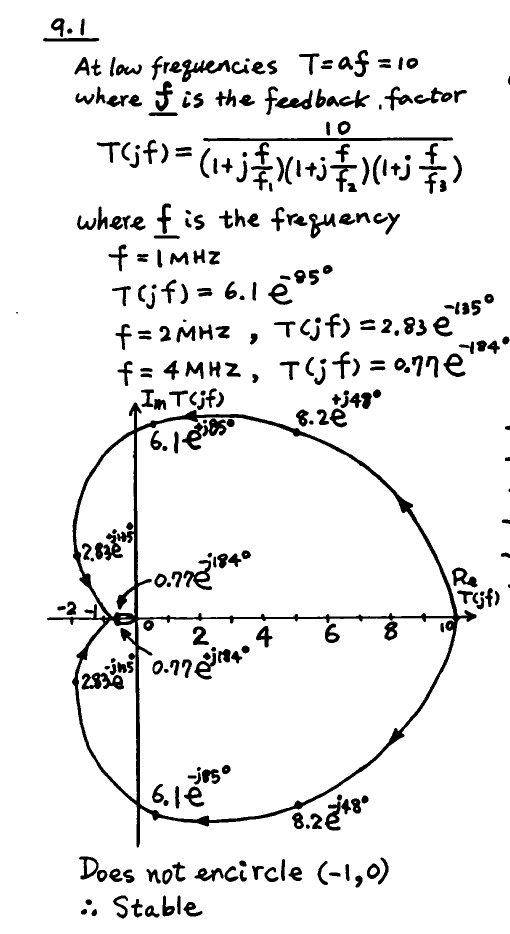 9.1
At low frequencies T=af=10
where f is the feedback factor
T(jf) = 10 / (1+j f/f₁)(1+j f/f₂)(1+j f/f₃)
where f is the frequency
f = 1 MHZ
T(jf) = 6.1 e^-85°
f = 2 MHZ , T(jf) = 2.83 e^-135°
f = 4 MHZ , T(jf) = 0.77 e^-184°
Im T(jf)
8.2e^+j48°
6.1e^+j85°
2.83e^+j135°
0.77e^-j184°
Re
T(jf)
-2 -1 0 2 4 6 8 10
2.83e^-j135°
0.77e^+j184°
6.1e^-j85°
8.2e^-j48°
Does not encircle (-1,0)
∴ Stable